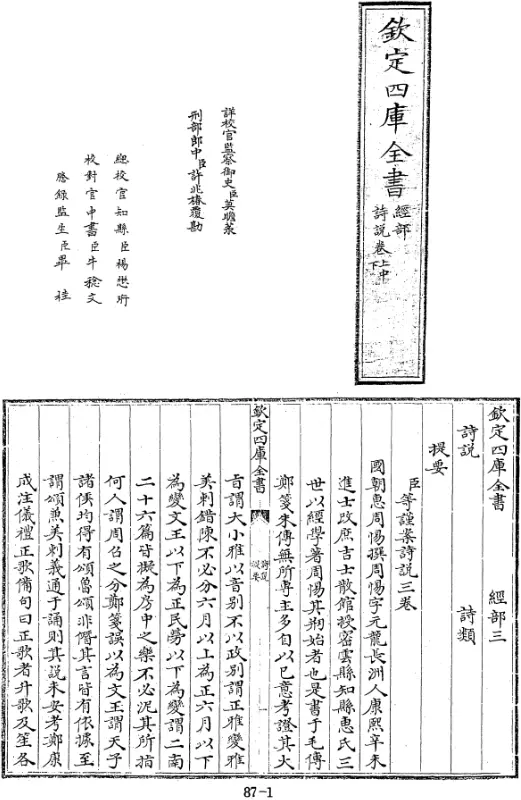 欽定四庫全書
經部
詩說卷上中下
詳校官監察御史臣莫瞻菉
刑部郎中臣許兆椿覆勘
總校官知縣臣楊懋珩
校對官中書臣牛稔文
謄錄監生臣畢桂
欽定四庫全書
經部三
詩說
詩類
提要
臣等謹案詩說三卷
國朝惠周惕撰周惕字元龍長洲人康熙辛未
進士改庶吉士散館授密雲縣知縣惠氏三
世以經學著周惕其剏始者也是書于毛傳
鄭箋朱傳無所專主多自以己意考證其大
欽定四庫全書
詩說
提要
旨謂大小雅以音別不以政別謂正雅變雅
美刺錯陳不必分六月以上為正六月以下
為變文王以下為正民勞以下為變謂二南
二十六篇皆擬為房中之樂不必泥其所指
何人謂周召之分鄭箋誤以為文王謂天子
諸侯均得有頌魯頌非僭其言皆有依據至
謂頌兼美刺義通于誦則其說未安考鄭康
成注儀禮正歌備句曰正歌者升歌及笙各
87-1